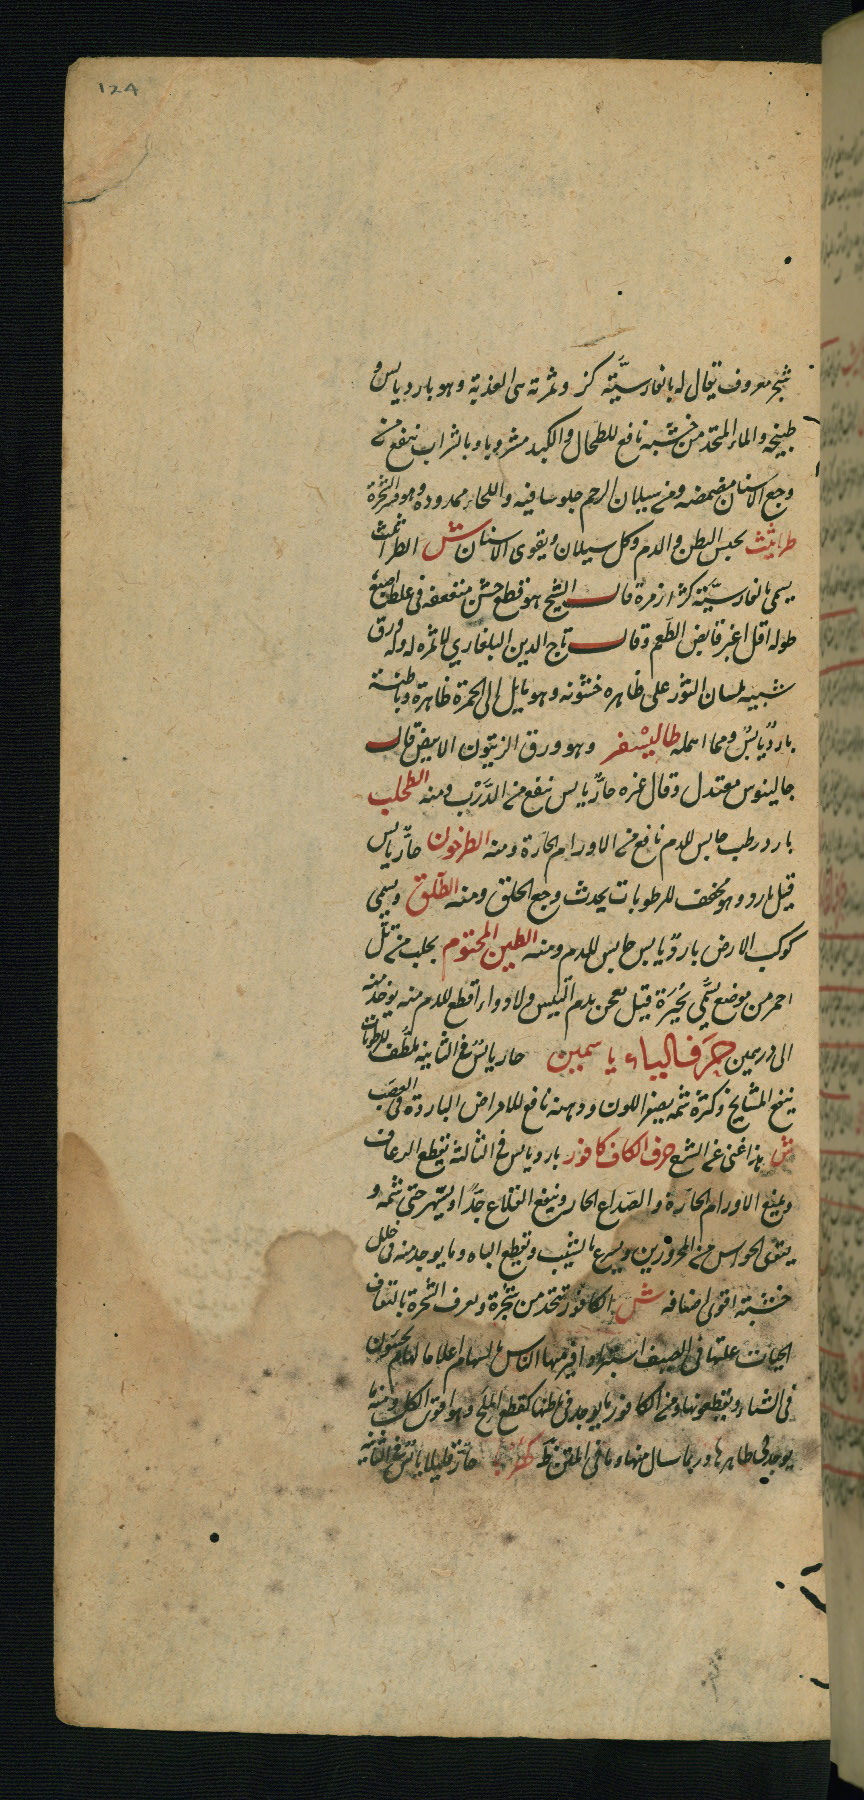 ١٢٤
شجر معروف يقال له بالفارسيَّة كز وثمرته هى العذبة وهو بارد يابس و
طبيخه والماء المتخذ من خشبه نافع للطحال والكبد مشروبا وبالشراب ينفع من
وجع الاسنان مضمضه ومن سيلان الرحم جلوسا فيه واللحاء ممدوده وهو قشر الشجرة
طراثيث يحبس البطن والدم وكل سيلان ويقوى الاسنان ش الطراثيث
يسمى بالفارسيَّة كز ازمزه قال الشيخ هو قطع خشن متقعفه فى غلظ اصبع
طوله اقل اغبر قابض الطعم وقال تاج الدين البلغاري لا ثمرة له وله ورق
شبيه بلسان الثور على ظاهره خشونه وهو مايل الى الحمرة ظاهرة وباطنة
بارد يابس ومما اهمله طاليسفر وهو ورق الزيتون الابيض قال
جالينوس معتدل وقال غيره حار يابس ينفع من الذرب ومنه الطحلب
بارد رطب حابس للدم نافع من الاورام الحارة ومنه الطرخون حار يابس
قيل بارد وهو مجفف للرطوبات يحدث وجع الحلق ومنه الطلق ويسمى
كوكب الارض بارد يابس حابس للدم ومنه الطين المختوم يجلب من تل
احمر من موضع يسمى بحيرة قيل يعجن بدم التيس ولا دواء اقطع للدم منه يوخذ منه
الى درهمين حرف الياء ياسمين حار يابس فى الثانيه ملطف للرطوبات
ينفع المشايخ وكثرة شمه يصفر اللون ودهنه نافع للامراض الباردة فى العصب
ش هذا غنى عن الشرح حرف الكاف كافور بارد يابس فى الثالثة يقطع الرعاف
ويمنع الاورام الحارة والصداع الحار وينفع القلاع جدًا ويسهر حتى شمه و
يقوى الحواس من المحرورين ويسرع بالشيب ويقطع الباه وما يوجد منه فى خلل
خشبته اقوى اضعافه ش الكافور يتخذ من شجرة ويعرف الشجرة بالتفاف
الحيات عليها فى الصيف استبرادا فيرميها الناس بالسهام اعلاما لها ثم يجيئون
فى الشتاء ويقطعونها ومن الكافور ما يوجد فى بطنها كقطع الملح وهو اقوى الكل ومنه ما
يوجد فى ظاهرها وربما سال منها وباقى المتن ظ حار قليلا يابس فى الثانيه